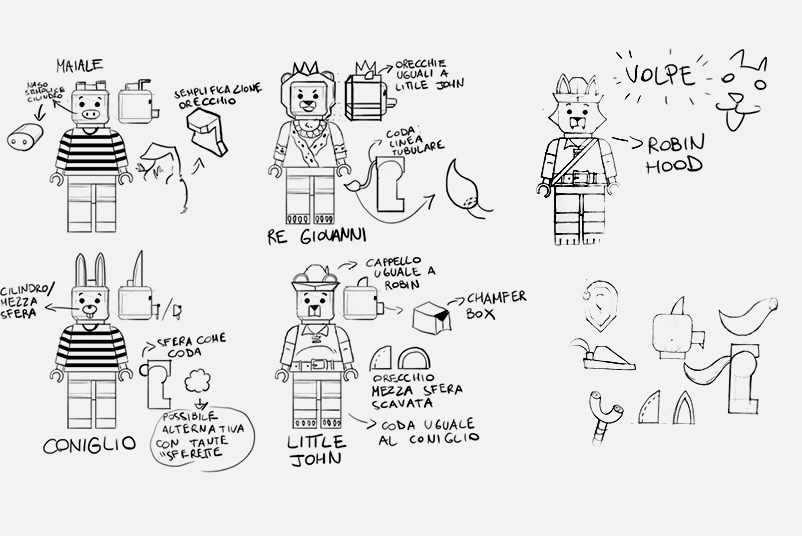 MAIALE
NASO
SEMPLICE
CILINDRO
SEMPLIFICAZIONE
ORECCHIO
ORECCHIE
UGUALI A
LITLE JOHN
CODA:
LINEA
TUBULARE
RE GIOVANNI
VOLPE
ROBIN
HOOD
CILINDRO/
MEZZA
SFERA
SFERA COME
CODA
POSSIBILE
ALTERNATIVA
CON TANTE
"SFERETTE
CONIGLIO
CAPPELLO
UGUALE A
ROBIN
CHAMFER
BOX
ORECCHIO
MEZZA SFERA
SCAVATA
CODA UGUALE
AL CONIGLIO
LITTLE
JOHN